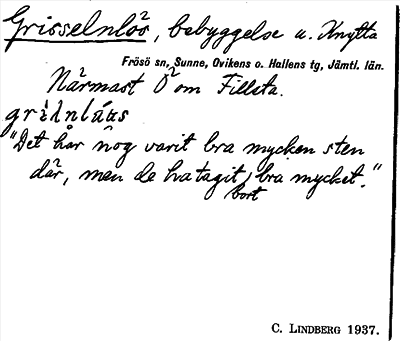 Grisselnlöś, bebyggelse u. Knytta
Frösö sn, Sunne, Ovikens o. Hallens tg, Jämtl. län.
Närmast Ö om Fillsta.
"Det har nog varit bra mycken sten
där, men de ha tagit bort bra mycket."
C. LINDBERG 1937.